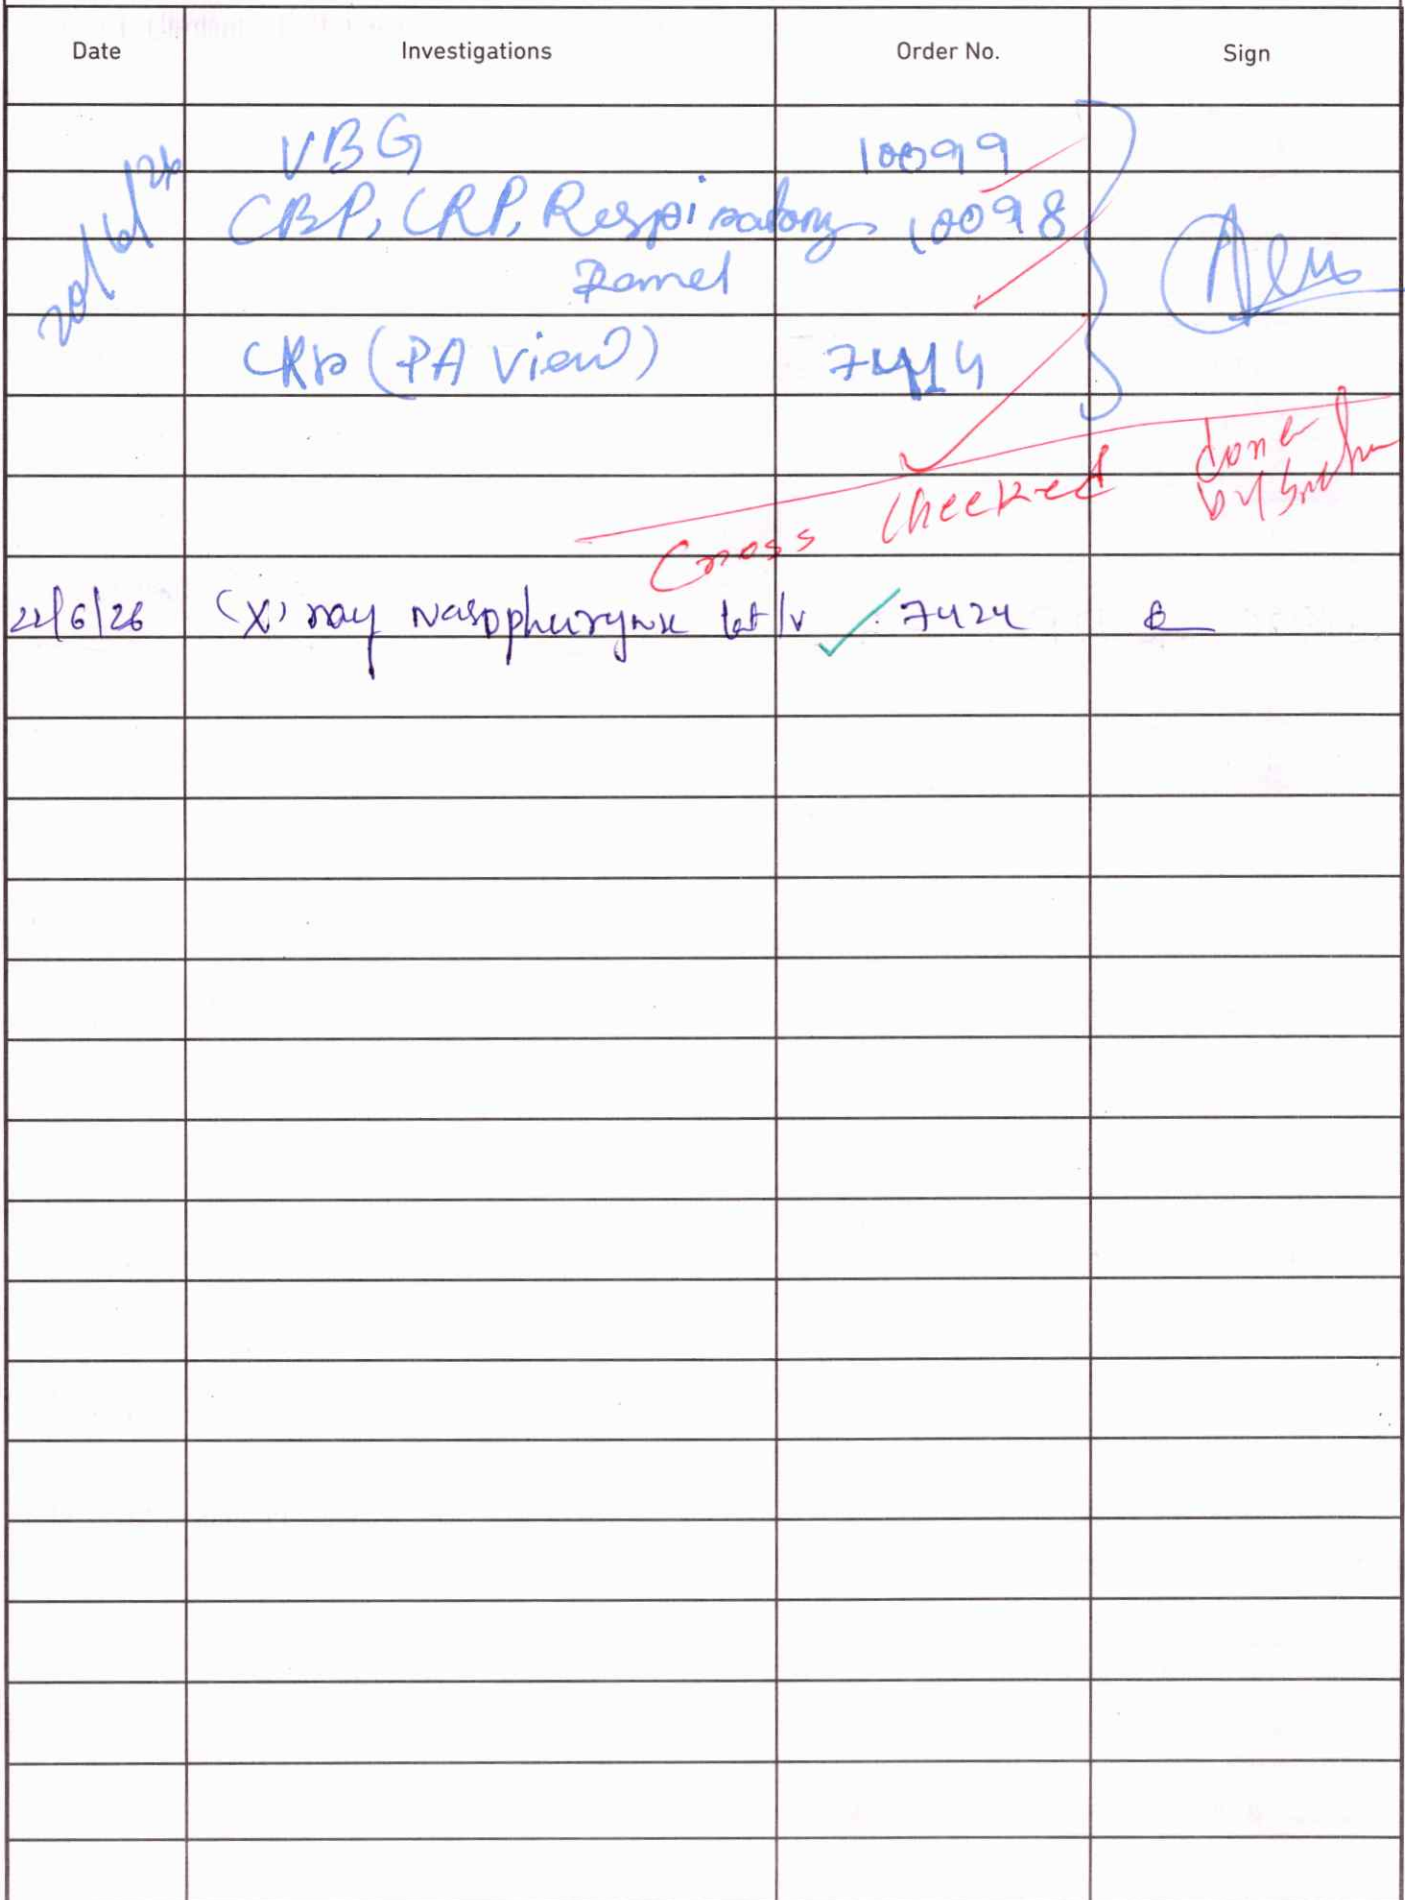 Date Investigations Order No. Sign
20/6/26 VBG 10099
CBP, CRP, Respiratory 10098
Panel
(PA View) 7414
Cross checked done
by
22/6/26 (X) ray Nasopharynx lat/v 7424